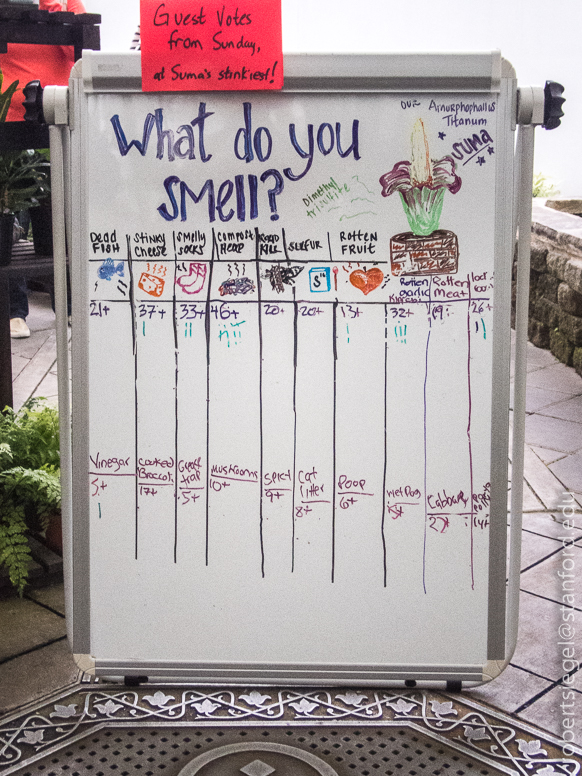 Guest Votes
from Sunday,
at Suma's stinkiest!
What do you
smell?
OUR Amorphophallus
Titanum
SUMA
Dimethyl
DEAD FISH
STINKY CHEESE
SMELLY SOCKS
COMPOST HEAP
ROAD KILL
SULFUR
ROTTEN FRUIT
Rotten garlic
Rotten meat
S
21+ 37+ 33+ 46+ 20+ 20+ 13+ 32+ 26+
Vinegar
Cooked Broccoli
Mushrooms
Cat litter
Poop
Wet Dog
Cabbage
5+ 17+ 5+ 10+ 9+ 8+ 6+ 14+
robertsiegel@stanford.edu